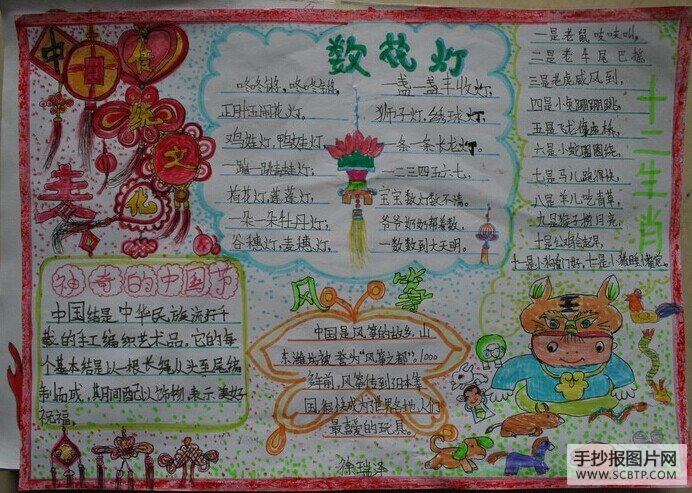 中国传统文化
美
数花灯
咚咚锵，咚咚锵，
正月十五闹花灯。
鸡娃灯，鸭娃灯，
一蹦一跳青蛙灯。
荷花灯，莲蓬灯，
一朵一朵牡丹灯。
谷穗灯，麦穗灯，
一盏一盏丰收灯。
狮子灯，绣球灯，
一条一条长龙灯。
一二三四五六七，
宝宝数灯数不清。
爷爷奶奶帮着数，
一数数到大天明。
十二生肖
一是老鼠吱吱叫，
二是老牛尾巴摇，
三是老虎威风到，
四是小兔蹦蹦跳，
五是飞龙像座桥，
六是小蛇圈圈绕，
七是马儿跑得快，
八是羊儿吃青草，
九是猴子捞月亮，
十是公鸡
十一是小狗看门好，十二是小猪
神奇的中国节
中国结是中华民族流行千
载的手工编织艺术品，它的每
个基本结是以一根长绳从头至尾编
制而成，期间配以饰物，表示美好
祝福。
风筝
中国是风筝的故乡，山
东潍坊被誉为“风筝之都”，1000
年前，风筝传到日本等
国，很快成为世界各地人们
最喜爱的玩具。
徐瑞泽
手抄报图片网
WWW.SCBTP.COM